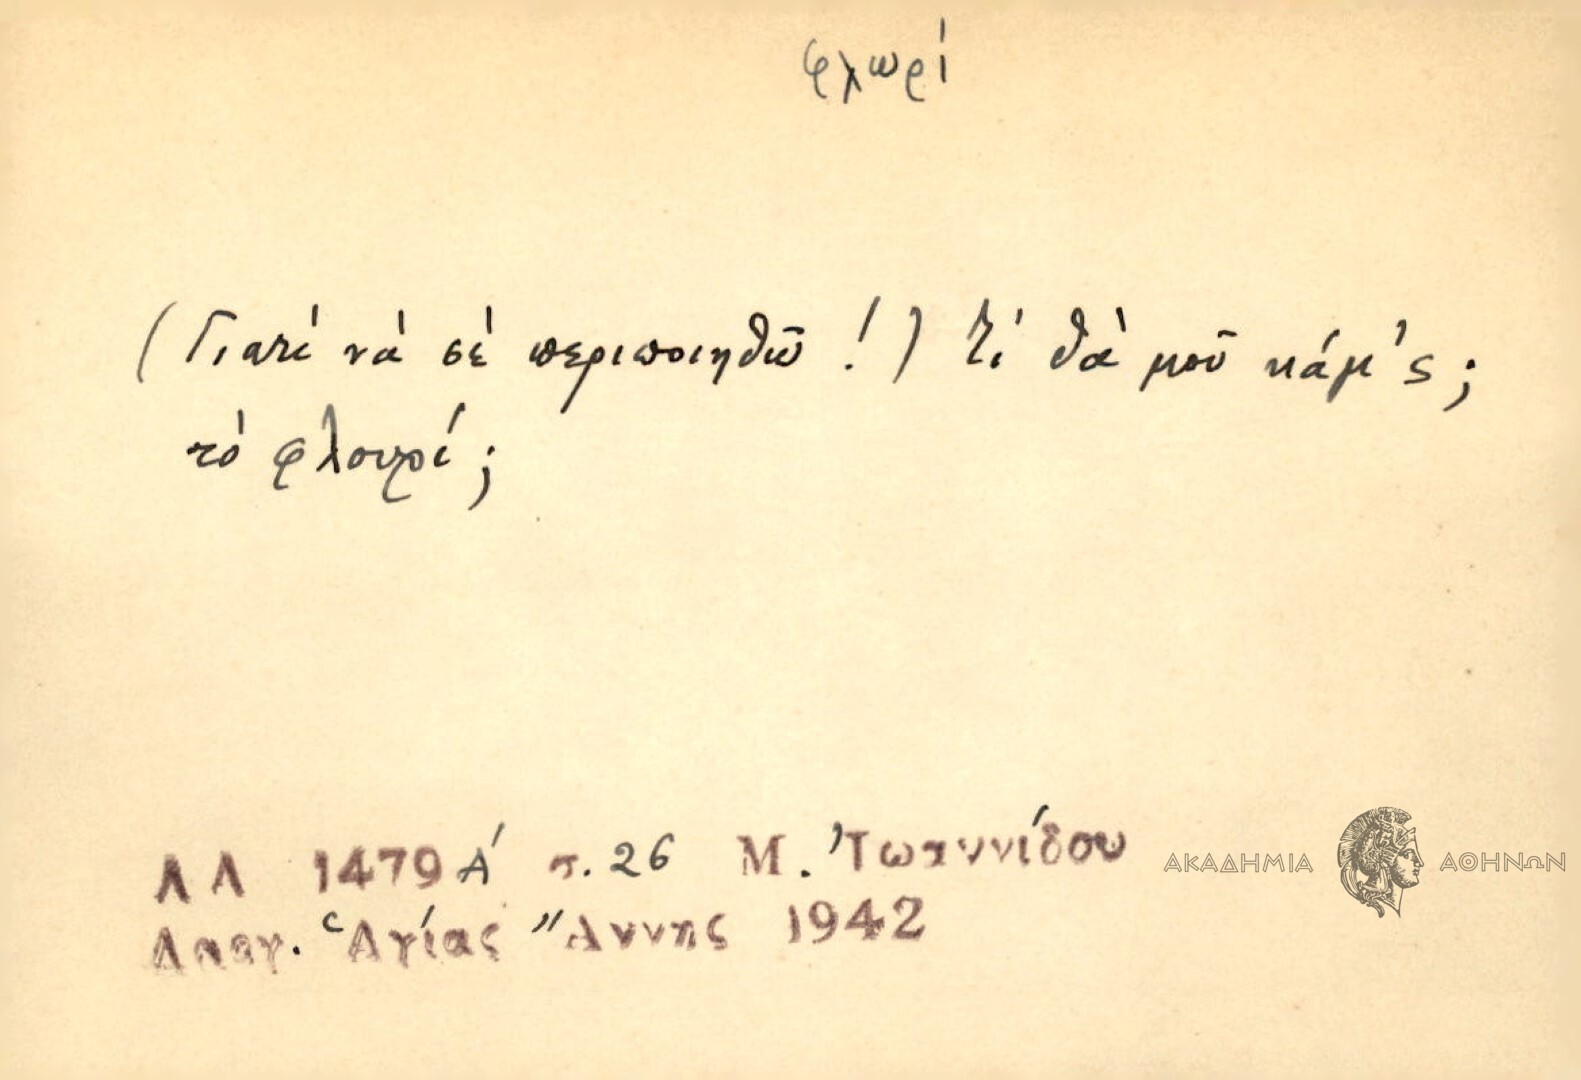 φλωρί
(Γιατί νὰ σὲ περιποιηθῶ!) Τί θὰ μοῦ κάμ'ς;
τὸ φλουρί;
ΛΛ 1479 Α΄ σ. 26 Μ. Ἰωαννίδου
Λαογ. Ἁγίας Ἄννης 1942
ΑΚΑΔΗΜΙΑ ΑΘΗΝΩΝ